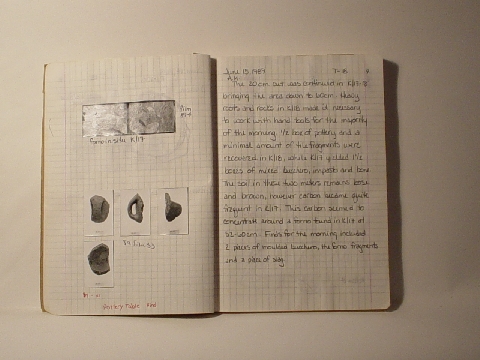 Forno in situ K/17
June 15, 1987
A.M.
The 20cm cut was continued in K/17-18
bringing the area down to 60cm. Heavy
roots and rocks in K/18 made it necessary
to work with hand tools for the majority
of the morning. 1/2 box of pottery and a
minimal amount of tile fragments were
recovered in K/18, while K/17 yielded 1 1/2
boxes of mixed bucchero, impasto and bone.
The soil in these two meters remains loose
and brown, however carbon became quite
frequent in K/17. This carbon seemed to
concentrate around a forno found in K/17 at
52-60cm. Finds for the morning included
2 pieces of moulded bucchero, the forno fragments
and a piece of slag.